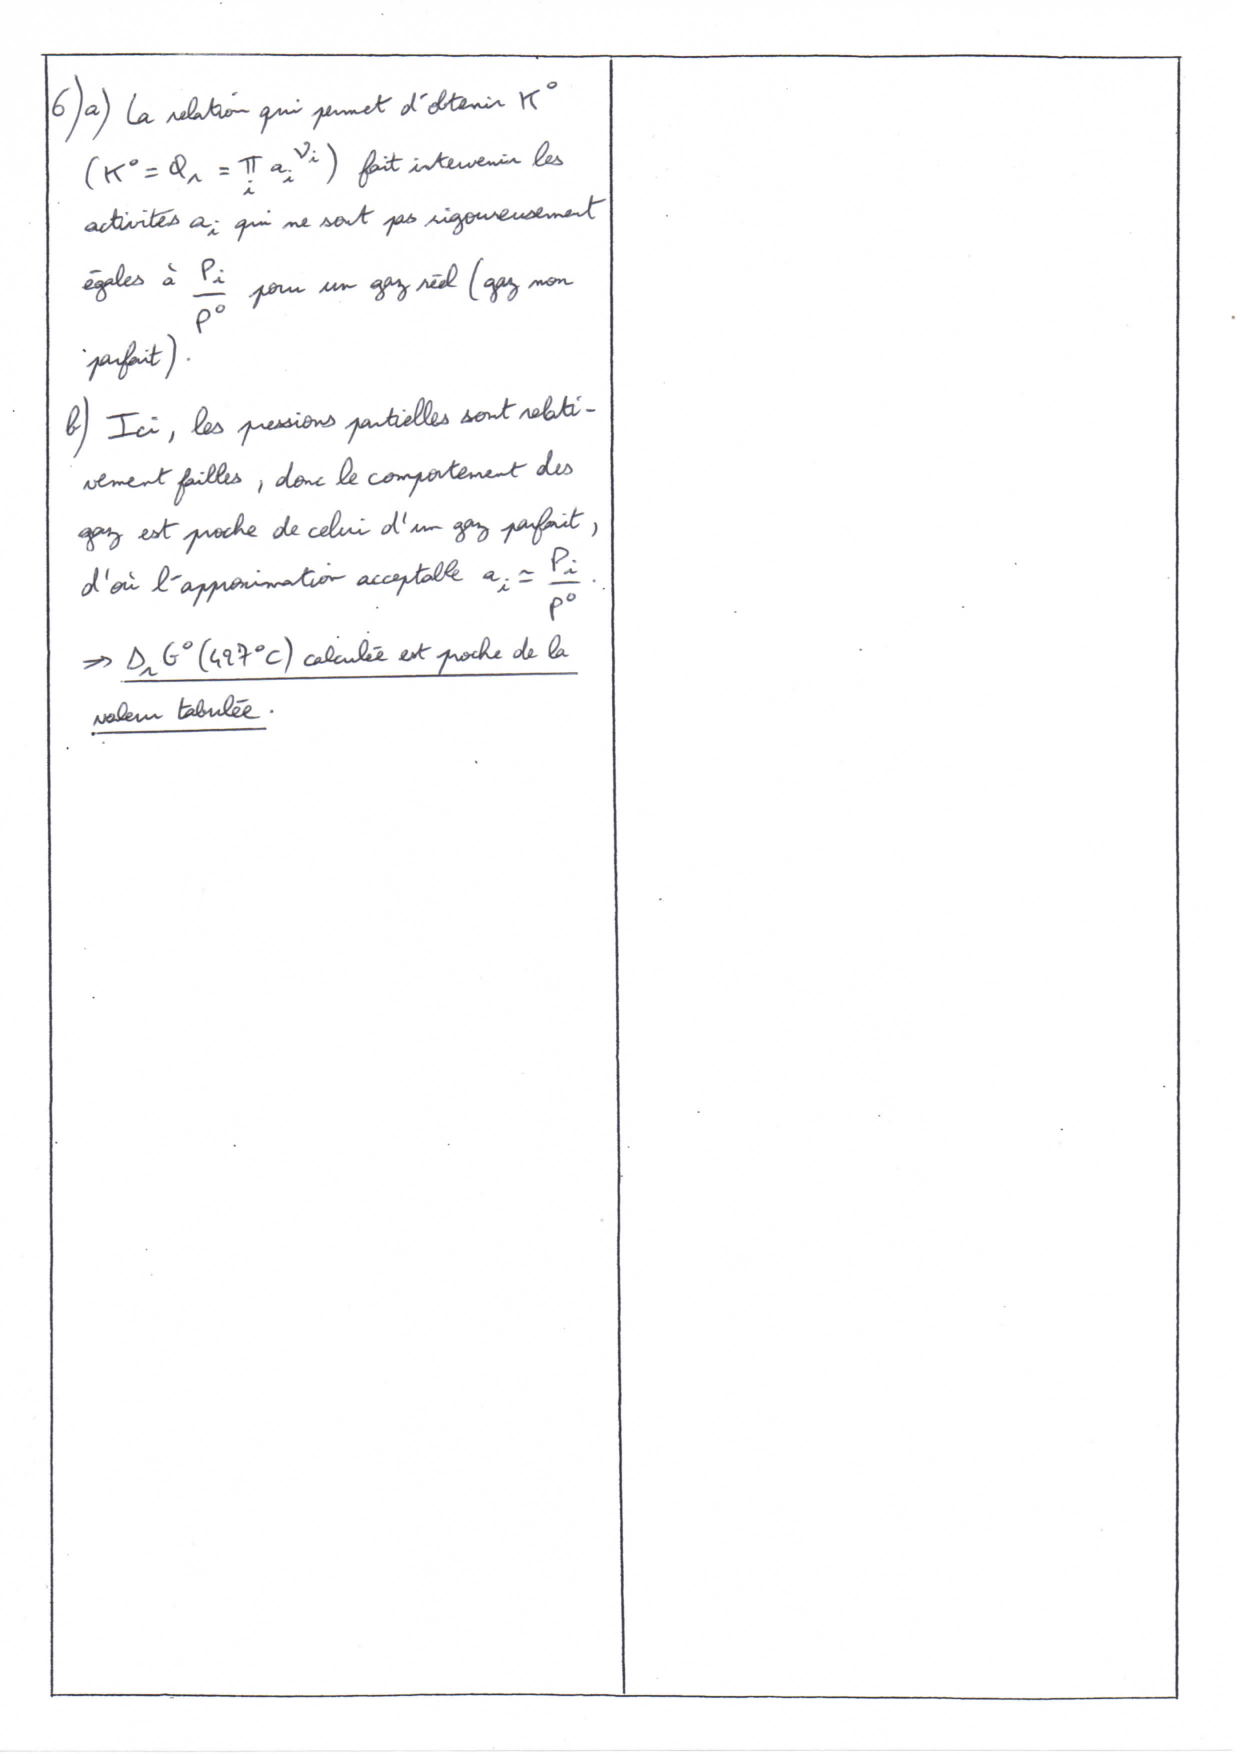 6)a) La relation qui permet d'obtenir K°
(K° = Qr = π_i a_i^νi) fait intervenir les
activités a_i qui ne sont pas rigoureusement
égales à P_i/P° pour un gaz réel (gaz non
parfait).
b) Ici, les pressions partielles sont relati-
vement faibles, donc le comportement des
gaz est proche de celui d'un gaz parfait,
d'où l'approximation acceptable a_i ≃ P_i/P°.
⇒ ΔrG°(497°C) calculée est proche de la
valeur tabulée.